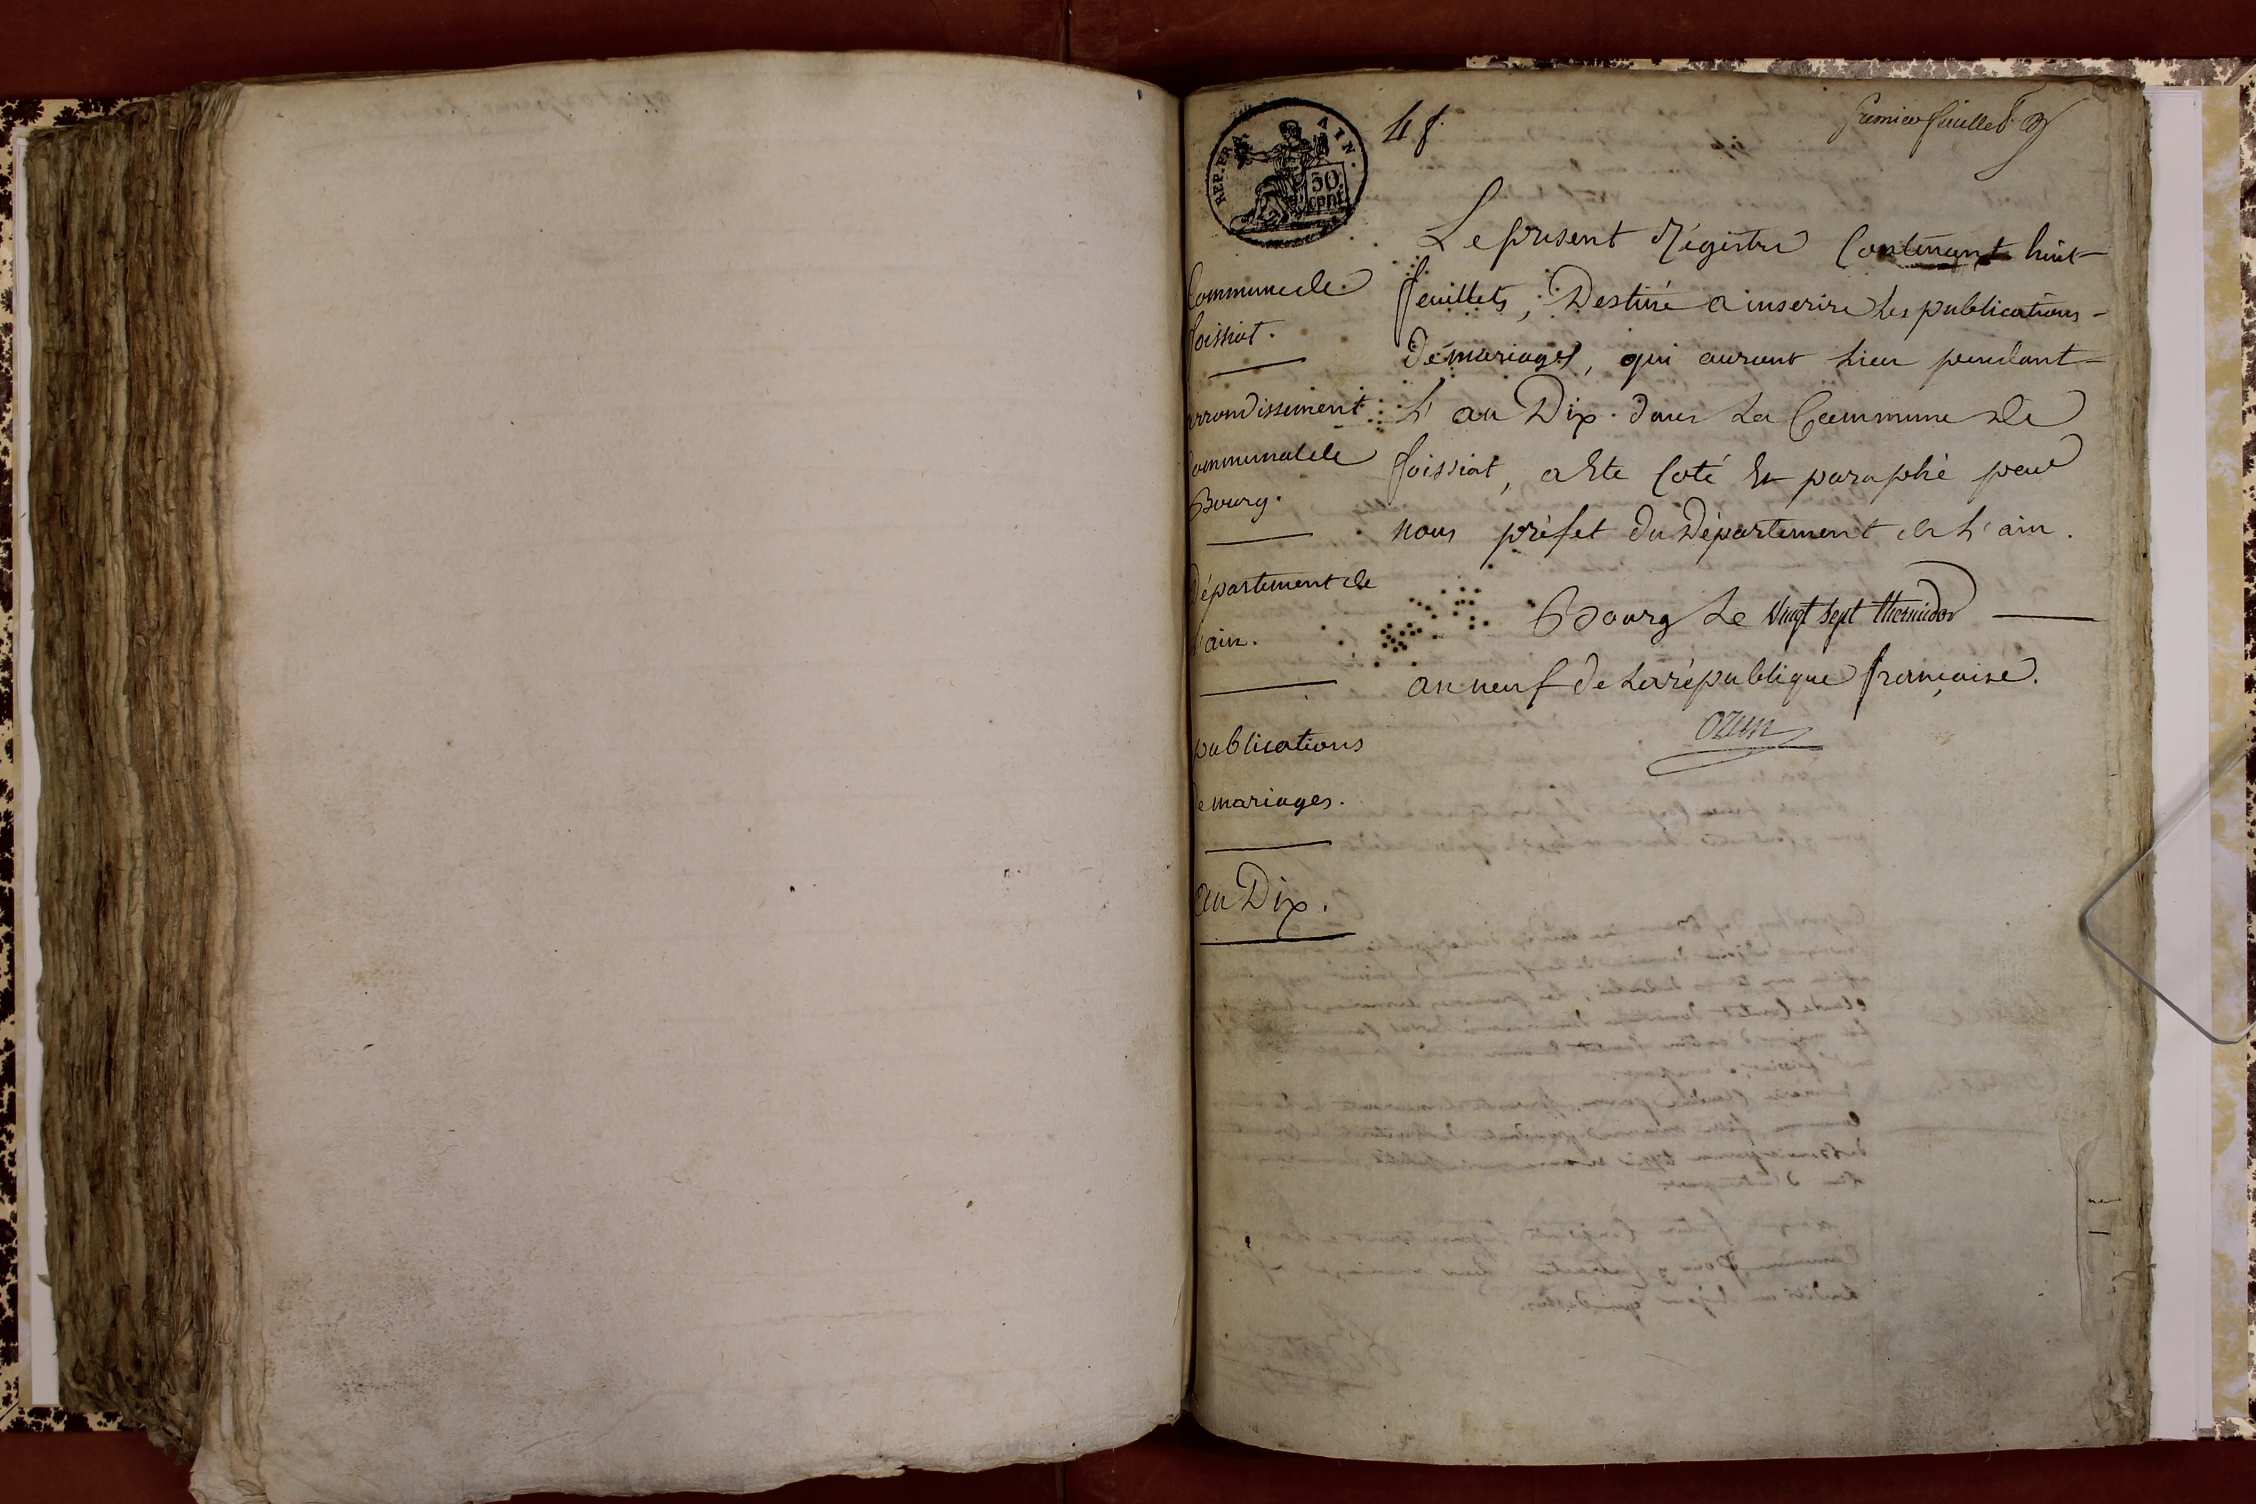 REP. FRA. AIN.
50
CENT.
4 f.
premier feuillet
Le present Régistre Contenant huit
feuillets, Destiné a inserire les publications
de mariages, qui auront lieu pendant
l'an Dix. dans la Commune de
foissiat, a Eté Coté Et paraphé par
nous préfet du Département de l'ain.
Bourg Le vingt sept thermidor
an neuf de la république française.
ozun
Commune de
foissiat.
arrondissement
Communal de
Bourg.
Département de
l'ain.
publications
de mariages.
an Dix.